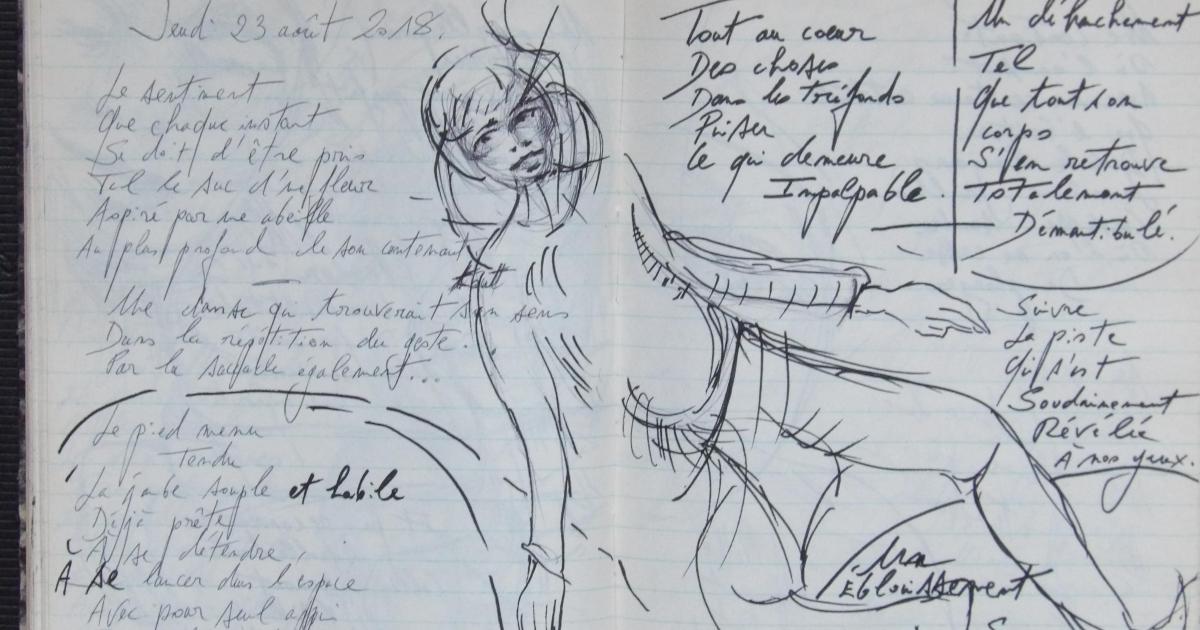 Jeudi 23 août 2018.
Le sentiment
Que chaque instant
Se doit d'être pris
Tel le suc d'une fleur
Aspiré par une abeille
Au plus profond de son contenant
Une danse qui trouverait son sens
Dans la répétition du geste.
Par la saccade également...
Le pied menu
Tendu
La jambe souple et habile
Déjà prête
À se détendre,
À se lancer dans l'espace
Avec pour seul appui
Tout au coeur
Des choses
Dans les tréfonds
Puiser
Ce qui demeure
Impalpable.
Un détachement
Tel
Que tout son
corps
S'en retrouve
Totalement
Démantibulé.
Suivre
La piste
Qui s'est
Soudainement
Révélée
À nos yeux.
Un
Éblouissement